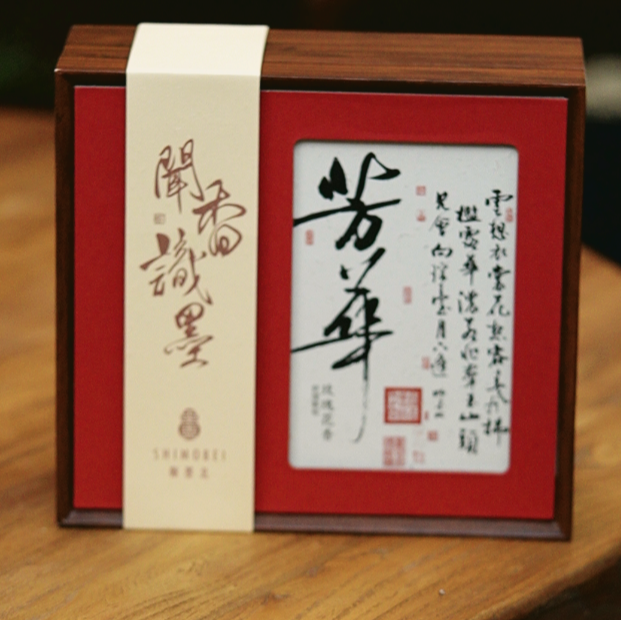 聞香識墨
SHIMOBEI
芳華
玫瑰花香
雲想衣裳花想容春風拂
檻露華濃若非群玉山頭
見會向瑤臺月下逢